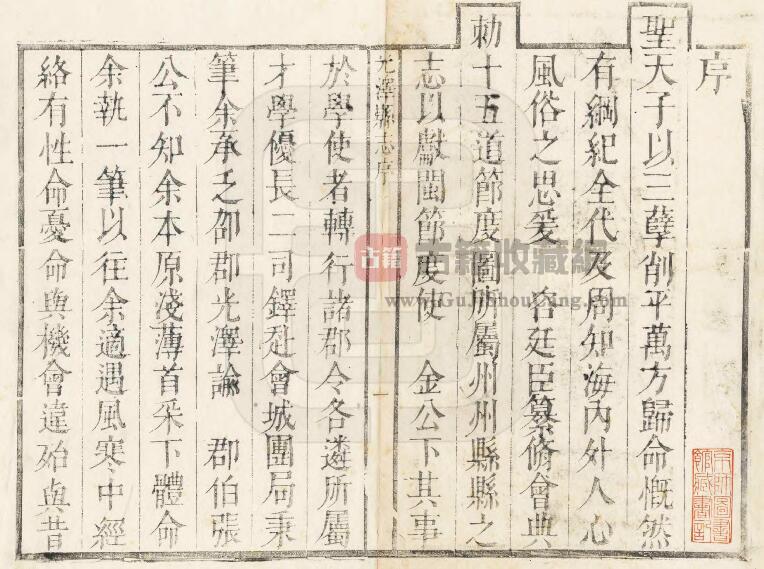 序
聖天子以三孽削平萬方歸命慨然
有綱紀全代及周知海内外人心
風俗之思爰 咨廷臣纂修會典
勅十五道節度圖所屬州州縣縣之
志以獻閩節度使 金公下其事
光澤縣志序
一
於學使者轉行諸郡令各遴所屬
才學優長二司鐸赴會城團局秉
筆余承乏邵郡光澤諭 郡伯張
公不知余本原淺薄首采下體命
余執一筆以往余適遇風寒中經
絡有性命憂命與機會違殆與昔
京師圖書
館藏書記
古籍 古籍收藏網
www.GuJiShouCang.com